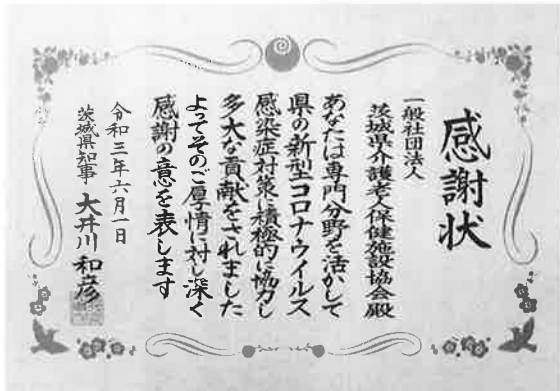 感謝状
一般社団法人
茨城県介護老人保健施設協会殿
あなたは専門分野を活かして
県の新型コロナウイルス
感染症対策に積極的に協力し
多大な貢献をされました
よってそのご厚情に対し深く
感謝の意を表します
令和三年六月一日
茨城県知事 大井川和彦